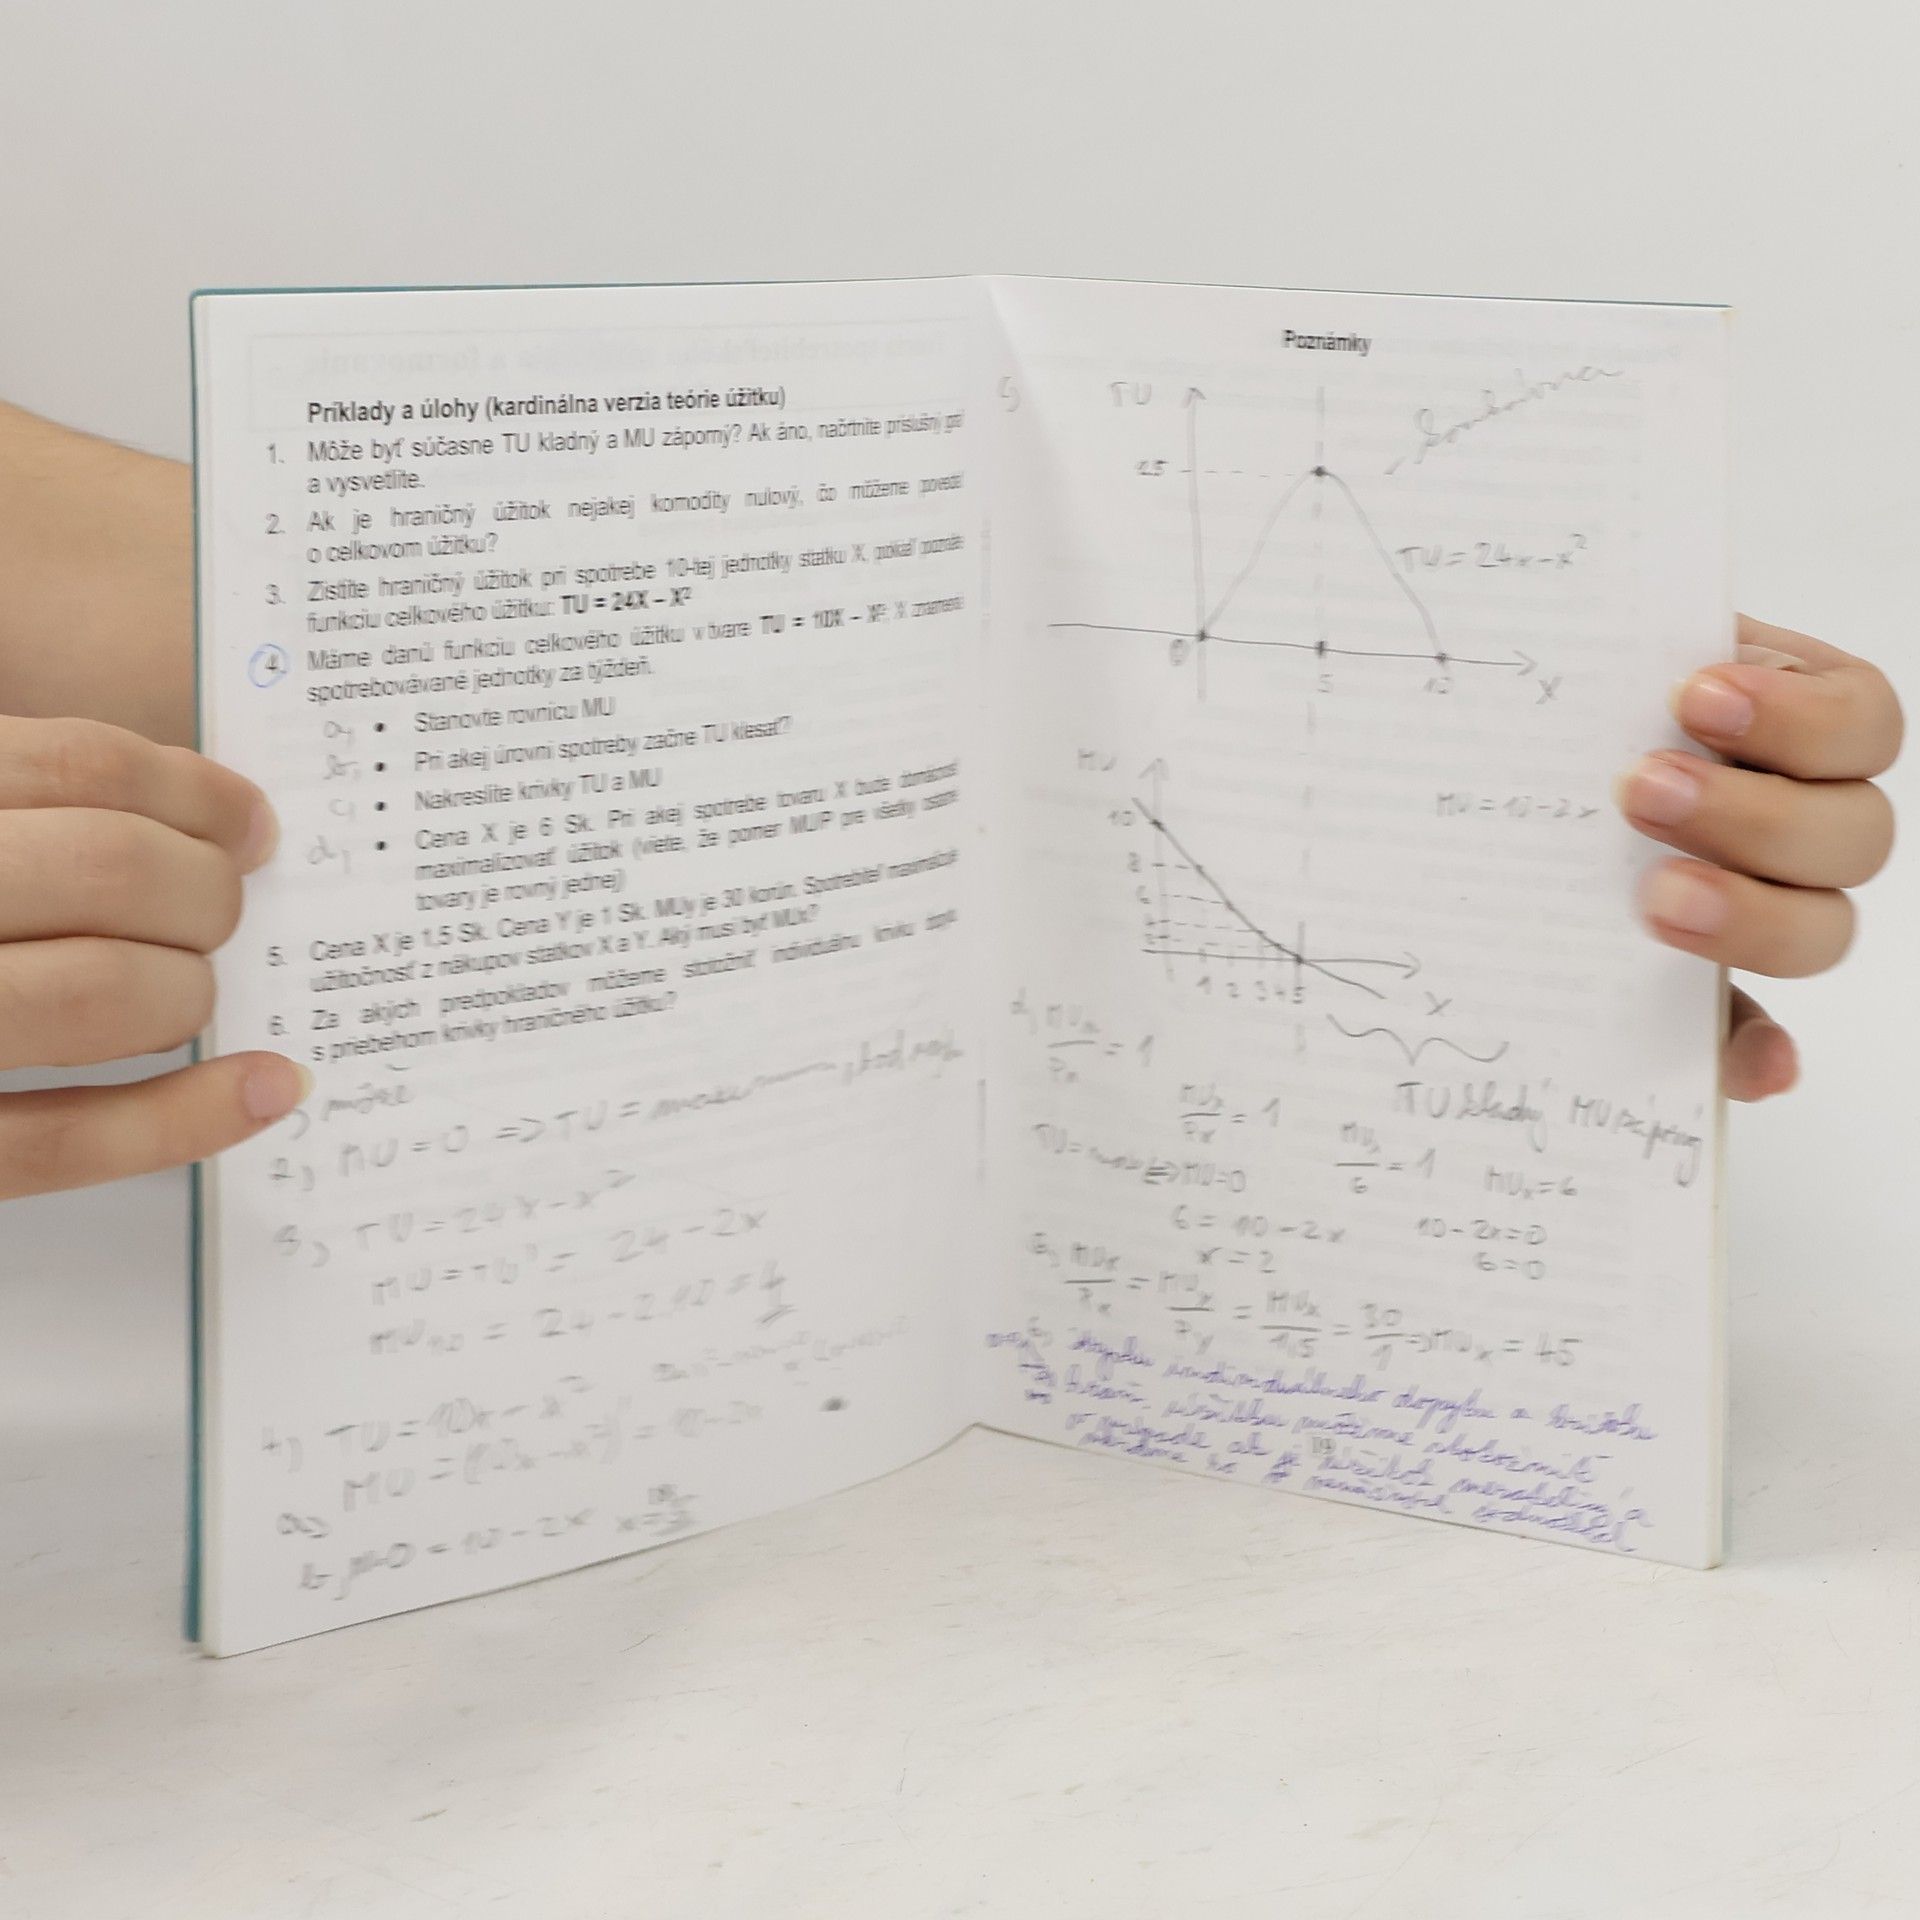 Príklady a úlohy (kardinálna verzia teórie úžitku)
1. Môže byť súčasne TU kladný a MU záporný? Ak áno, načrtnite príslušný graf
a vysvetlite.
2. Ak je hraničný úžitok nejakej komodity nulový, čo môžeme povedať
o celkovom úžitku?
3. Zistite hraničný úžitok pri spotrebe 10-tej jednotky statku X, pokiaľ poznáte
funkciu celkového úžitku: TU = 24X – X²
4. Máme danú funkciu celkového úžitku v tvare TU = 10X – X²; X znamená
spotrebovávané jednotky za týždeň.
a, • Stanovte rovnicu MU
b, • Pri akej úrovni spotreby začne TU klesať?
c, • Nakreslite krivky TU a MU
d, • Cena X je 6 Sk. Pri akej spotrebe tovaru X bude domácnosť
maximalizovať úžitok (viete, že pomer MU/P pre všetky ostatné
tovary je rovný jednej)
5. Cena X je 1,5 Sk. Cena Y je 1 Sk. MUy je 30 korún. Spotrebiteľ maximalizuje
užitočnosť z nákupov statkov X a Y. Aký musí byť MUx?
6. Za akých predpokladov môžeme stotožniť individuálnu krivku dopytu
s priebehom krivky hraničného úžitku?
1) môže
2) MU = 0 => TU =
3) TU = 24x - x²
MU = TU' = 24 - 2x
MU10 = 24 - 2.10 = 4
4) TU = 10x - x²
a) MU = (10x - x²)' = 10 - 2x
b) 0 = 10 - 2x
Poznámky
TU
25
TU = 24x - x²
0 5 10 X
MU
MU = 10 - 2x
10
8
6
4
2
1 2 3 4 5 X
TU kladný MU záporný
d, MUx/Px = 1
MUx/Px = 1
MUx/6 = 1 MUx = 6
TU = <=> MU = 0
6 = 10 - 2x 10 - 2x = 0
x = 2 6 = 0
MUx/Px = MUy/Py = MUx/1,5 = 30/1 => MUx = 45
individuálneho dopytu a krivku
úžitku môžeme stotožniť
v prípade ak je úžitok merateľný a
19